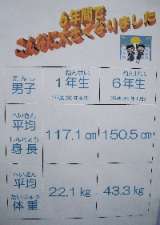 6年間で
こんなに大きくなりました
だんし
男子
ねんせい
1年生
ねんせい
6年生
へいきん
平均
しんちょう
身長
117.1cm
150.5cm
へいきん
平均
たいじゅう
体重
22.1kg
43.3kg